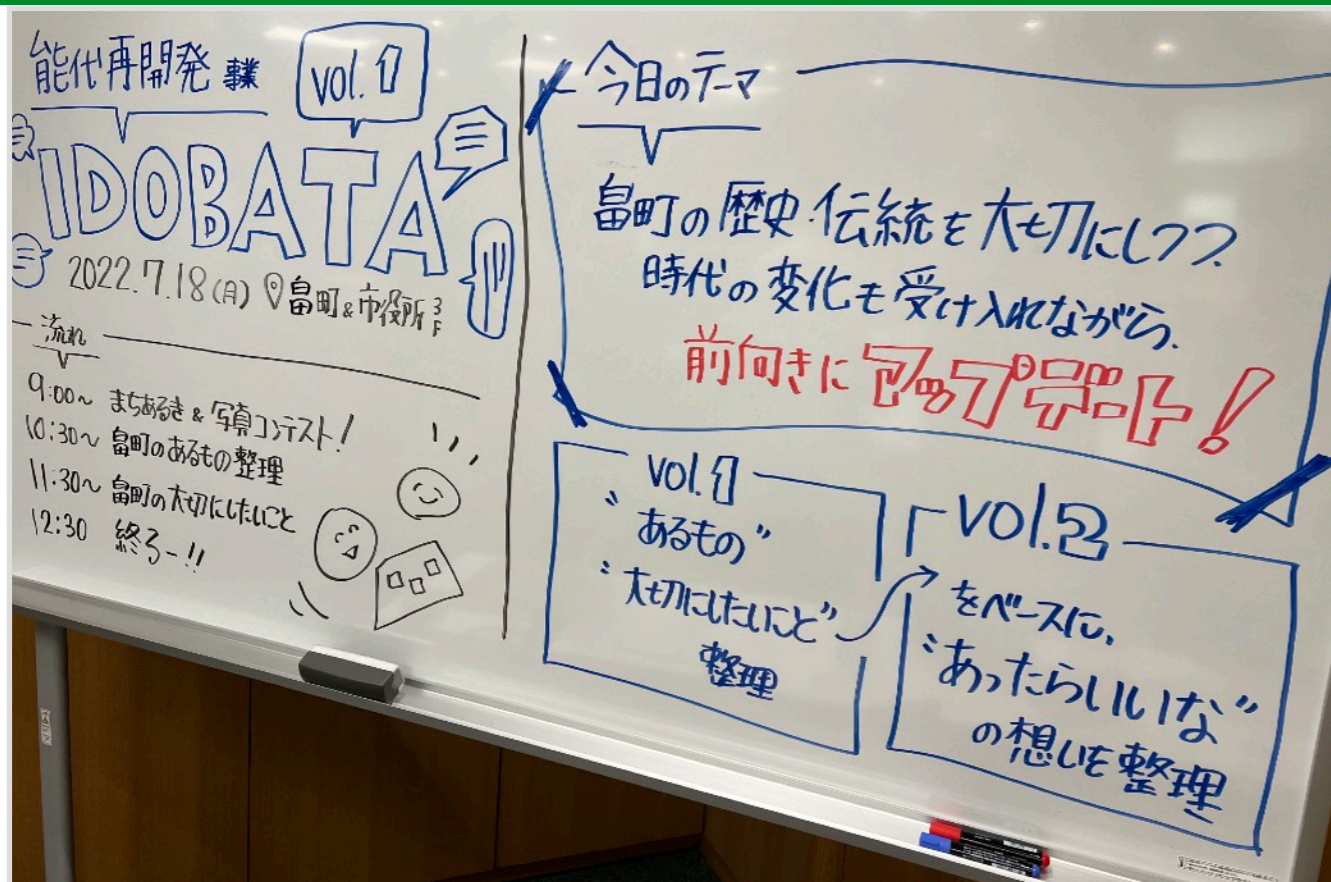 能代再開発 事業
vol.1
IDOBATA
2022.7.18(月) 畠町&市役所3F
流れ
9:00~ まちあるき & 写真コンテスト!
10:30~ 畠町のあるもの整理
11:30~ 畠町の大切にしたいこと
12:30 終る-!!
今日のテーマ
畠町の歴史・伝統を大切にしつつ、
時代の変化も受け入れながら、
前向きにアップデート!
vol.1
"あるもの"
"大切にしたいこと"
整理
vol.2
をベースに、
"あったらいいな"
の想いを整理